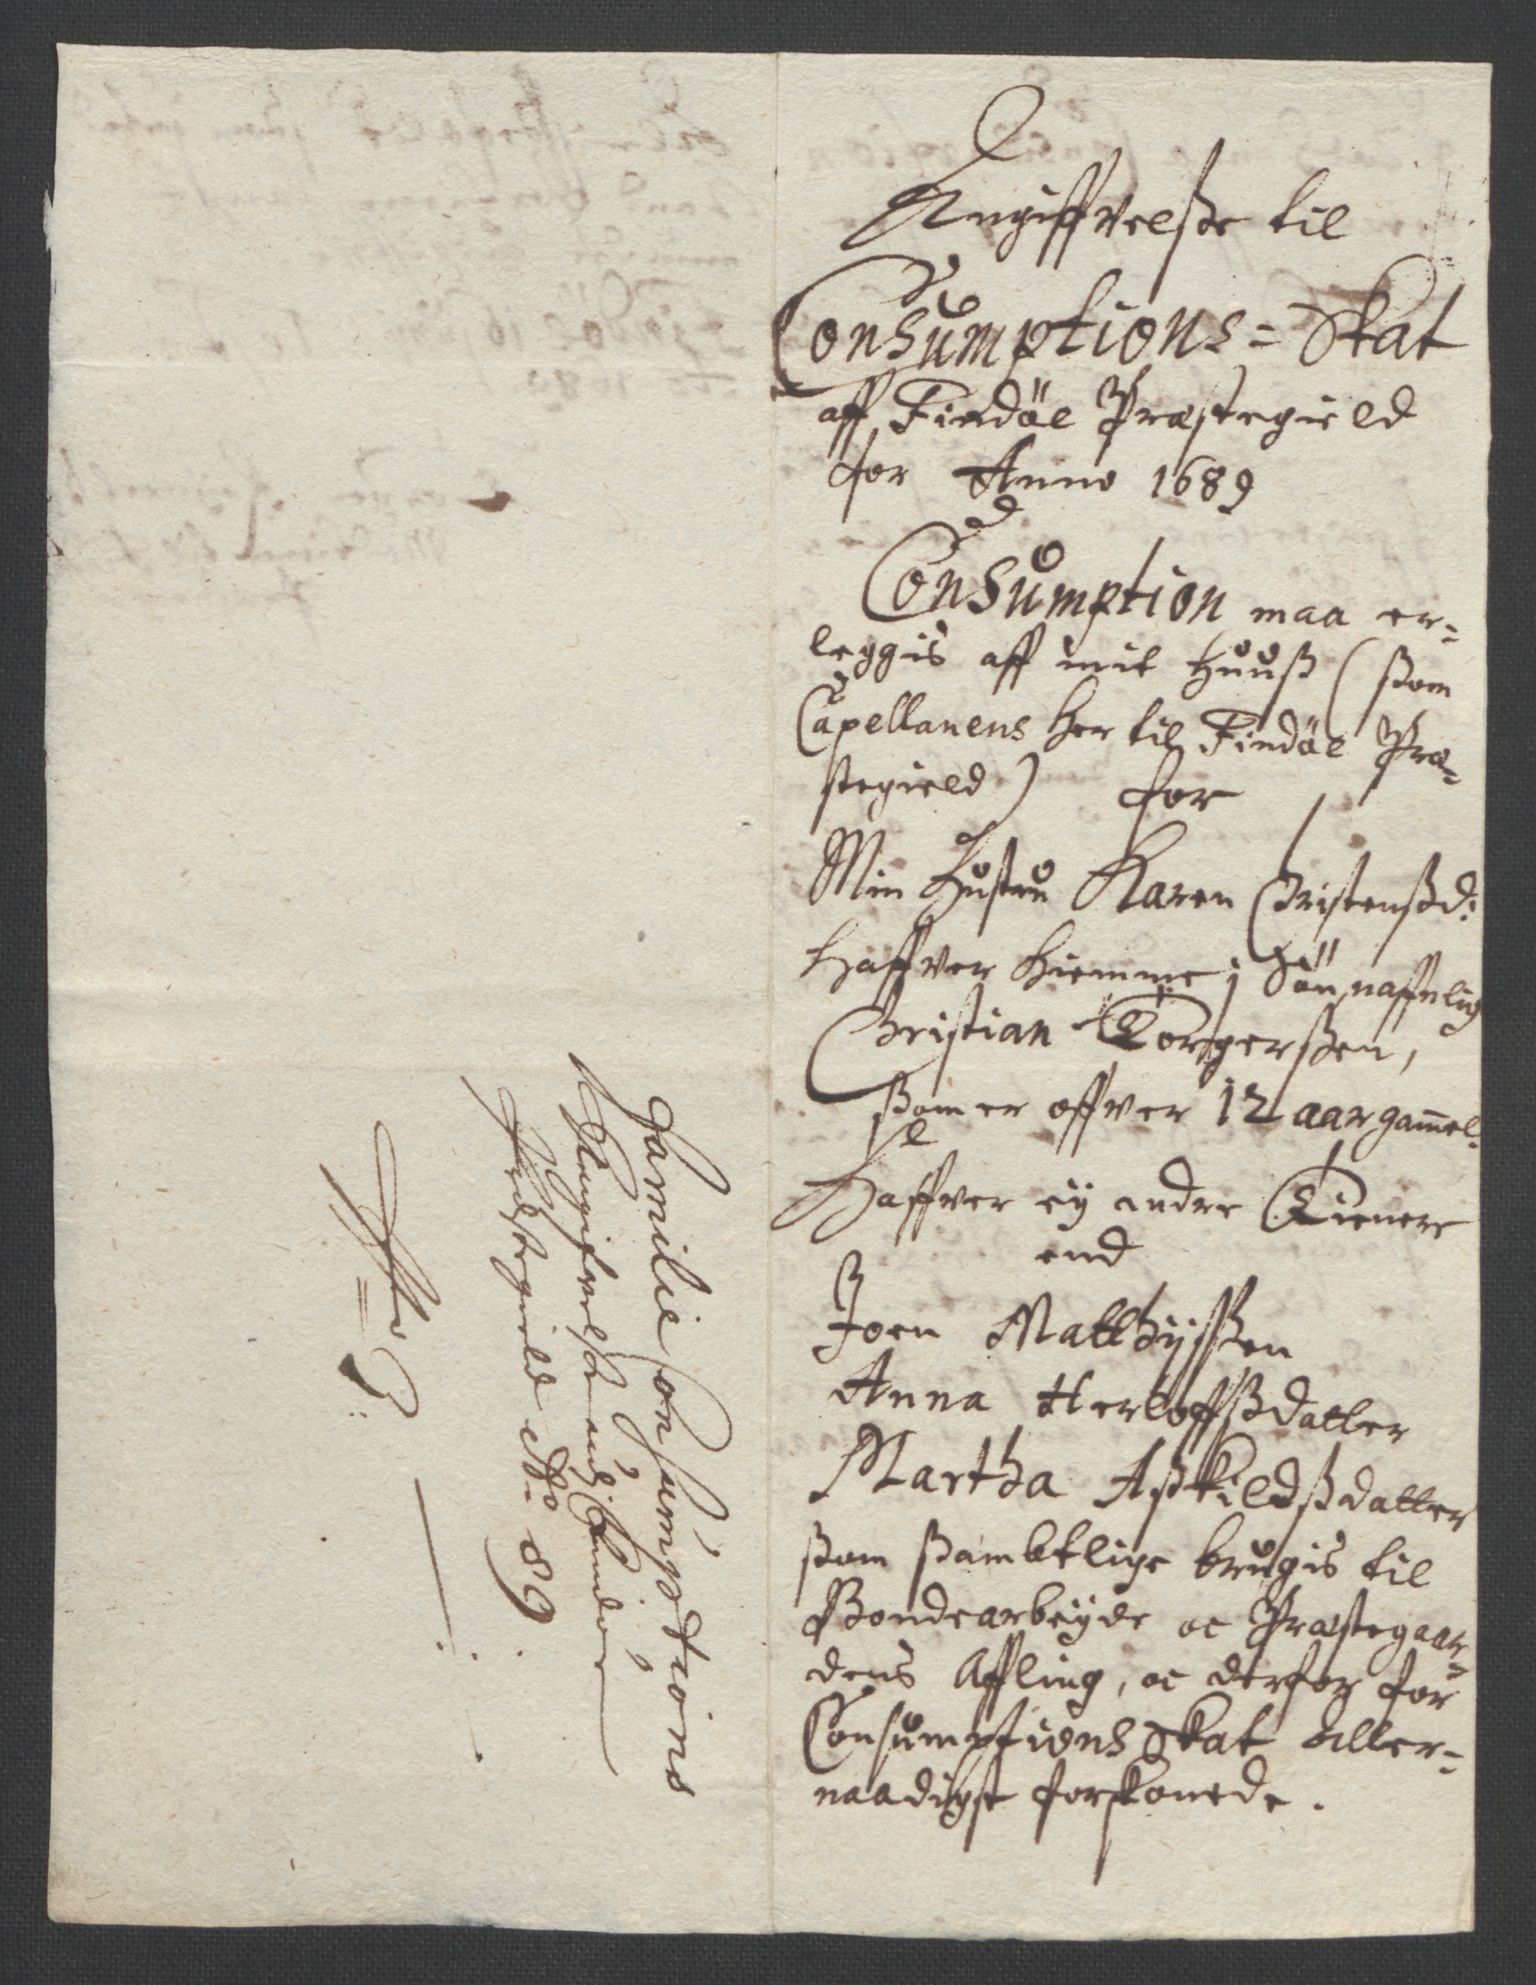 Angiffvelße til
Consumptions=Skat
aff Findöe Præstegield
for Anno 1689
Consumption maa er-
leggis aff mit Huuß (ßom
Capellanens her til Findöe Præ-
stegield) for
Min Hustru Karen Christenßd:
Haffver hiemme 1 Sön, naffnlig
Christian Torgerßen,
ßom er offver 12 aar gammel.
Haffver ey andre Tienere
end
Joen Matthijsßen
Anna Herloffßdatter
Martha Aßkildßdatter
ßom ßambtlige brugis til
Bondearbeyde oc Præstegaar-
dens Affling, oc derfor for
Consumptions Skat aller-
naadigst forskonede.
Familie Consumptions
Angifvelse
Prestegield Ao. 89